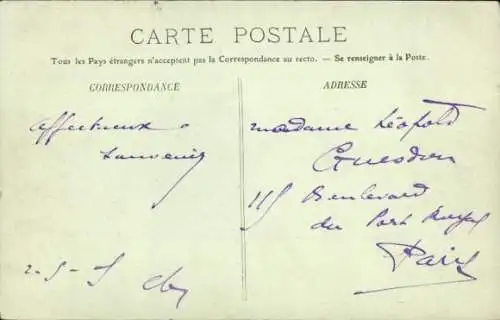 CARTE POSTALE
Tous les Pays étrangers n'acceptent pas la Correspondance au recto. — Se renseigner à la Poste.
CORRESPONDANCE
affectueux
souvenir
2-5-5
ADRESSE
Madame Léopold
Guesdon
115 Boulevard
du Port Royal
Paris